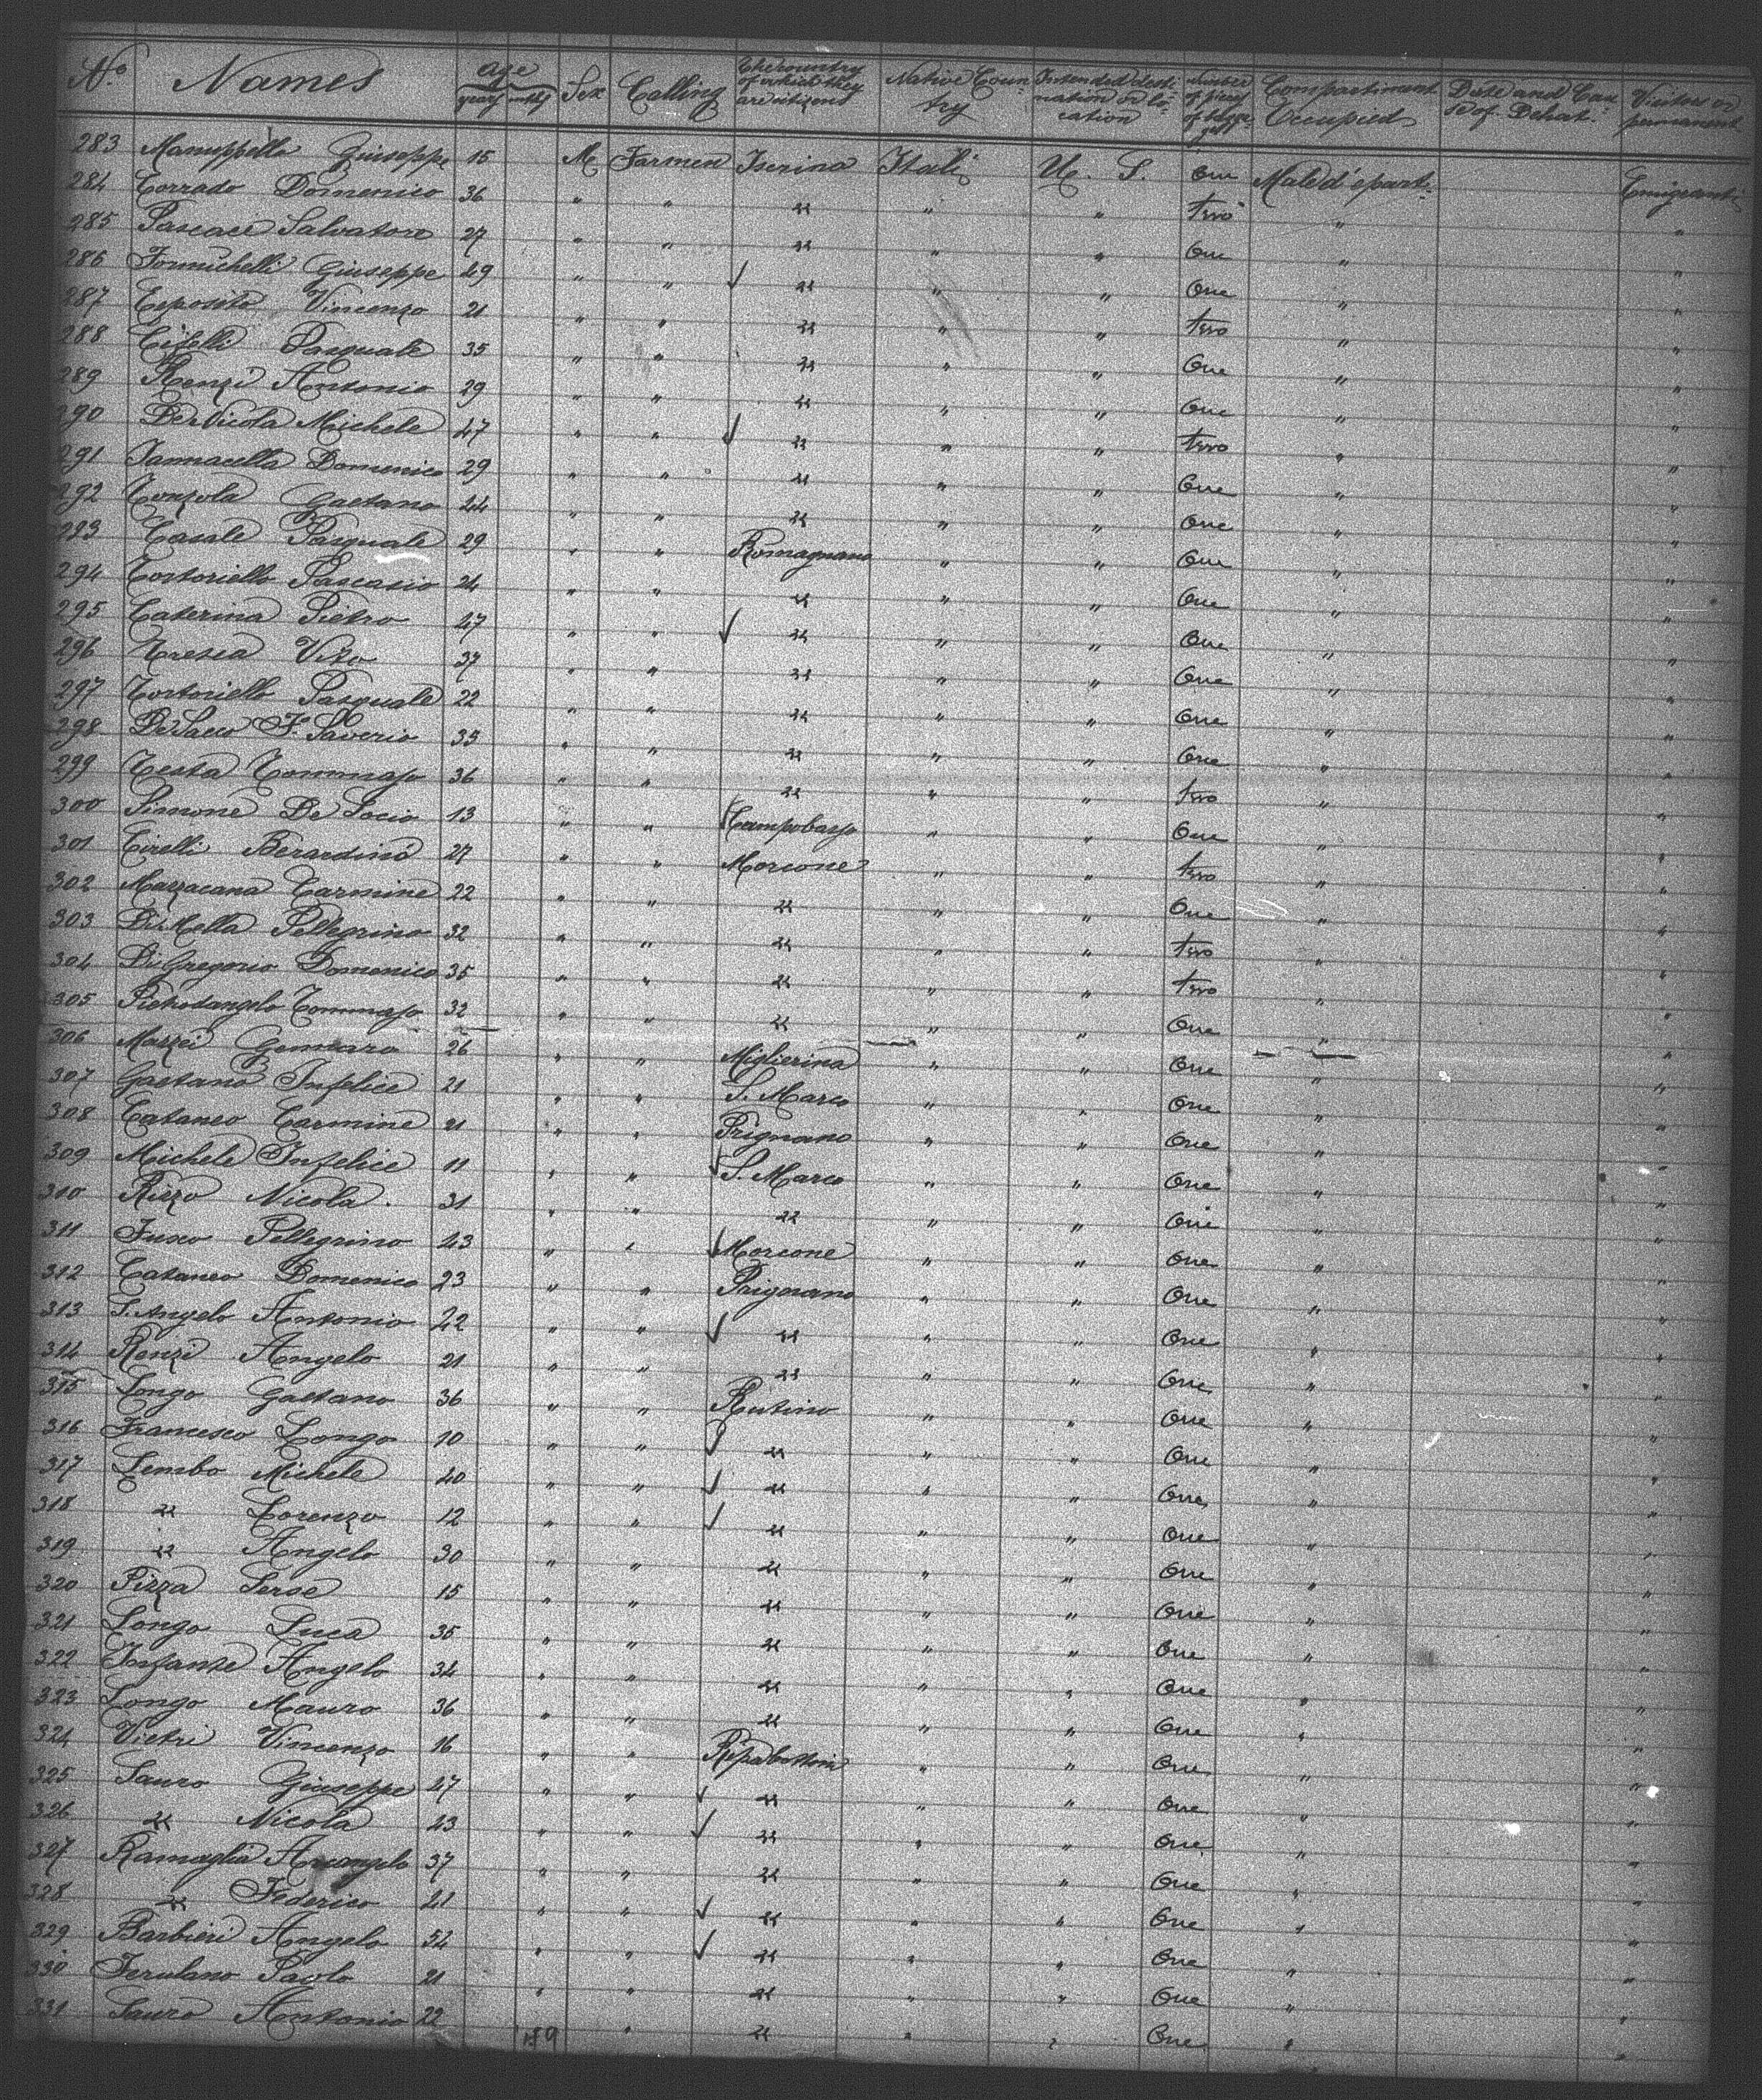 No. Names Age years mths Sex Calling The country of which they are citizens Native Country Intended destination or location number of pieces of baggage Compartiment Occupied Date and Cause of Dehat. Visitors or permanent
283 Manuppella Giuseppe 15 M Farmer Isernia Itali U. S. One Male départ. Emigranti
284 Corrado Domenico 36 " " " " " two " "
285 Pascace Salvatore 27 " " " " " One " "
286 Formichelli Giuseppe 49 " " " " " One " "
287 Esposito Vincenzo 21 " " " " " two " "
288 Cifelli Pasquale 35 " " " " " One " "
289 Renzi Antonio 29 " " " " " One " "
290 Michele 47 " " " " " two " "
291 Iannacella Domenico 29 " " " " " One " "
292 Gaetano 44 " " " " " One " "
293 Casale Pasquale 29 " " Romagnano " " One " "
294 Tortoriello Pascasio 24 " " " " " One " "
295 Caterina Pietro 47 " " " " " One " "
296 Vito 37 " " " " " One " "
297 Tortoriello Pasquale 22 " " " " " One " "
298 De Sacco F. Saverio 35 " " " " " One " "
299 Testa Tommaso 36 " " " " " two " "
300 Simone De Socio 13 " " Campobasso " " One " "
301 Cirelli Berardino 27 " " Morcone " " two " "
302 Mazzacana Carmine 22 " " " " " One " "
303 Di Mella Pellegrino 32 " " " " " two " "
304 Di Gregorio Domenico 35 " " " " " two " "
305 Pietrodangelo Tommaso 32 " " " " " One " "
306 Mazzei Gennaro 26 " " Miglierina " " One " "
307 Gaetano Infelice 21 " " S. Marco " " One " "
308 Cataneo Carmine 21 " " Prignano " " One " "
309 Michele Infelice 11 " " S. Marco " " One " "
310 Rizzo Nicola 31 " " " " " One " "
311 Fusco Pellegrino 43 " " Morcone " " One " "
312 Cataneo Domenico 23 " " Prignano " " One " "
313 S. Angelo Antonio 42 " " " " " One " "
314 Renzi Angelo 21 " " " " " One " "
315 Longo Gaetano 36 " " Rutino " " One " "
316 Francesco Longo 10 " " " " " One " "
317 Lembo Michele 40 " " " " " One " "
318 " Lorenzo 12 " " " " " One " "
319 " Angelo 30 " " " " " One " "
320 Pizza Serse 15 " " " " " One " "
321 Longo Luca 35 " " " " " One " "
322 Infante Angelo 34 " " " " " One " "
323 Longo Mauro 36 " " " " " One " "
324 Vietri Vincenzo 16 " " Ripabottoni " " One " "
325 Sauro Giuseppe 47 " " " " " One " "
326 " Nicola 43 " " " " " One " "
327 Ramaglia Arcangelo 37 " " " " " One " "
328 " Federico 41 " " " " " One " "
329 Barbieri Angelo 54 " " " " " One " "
330 Ferulano Paolo 21 " " " " " One " "
331 Sauro Antonio 22 " " " " One " "